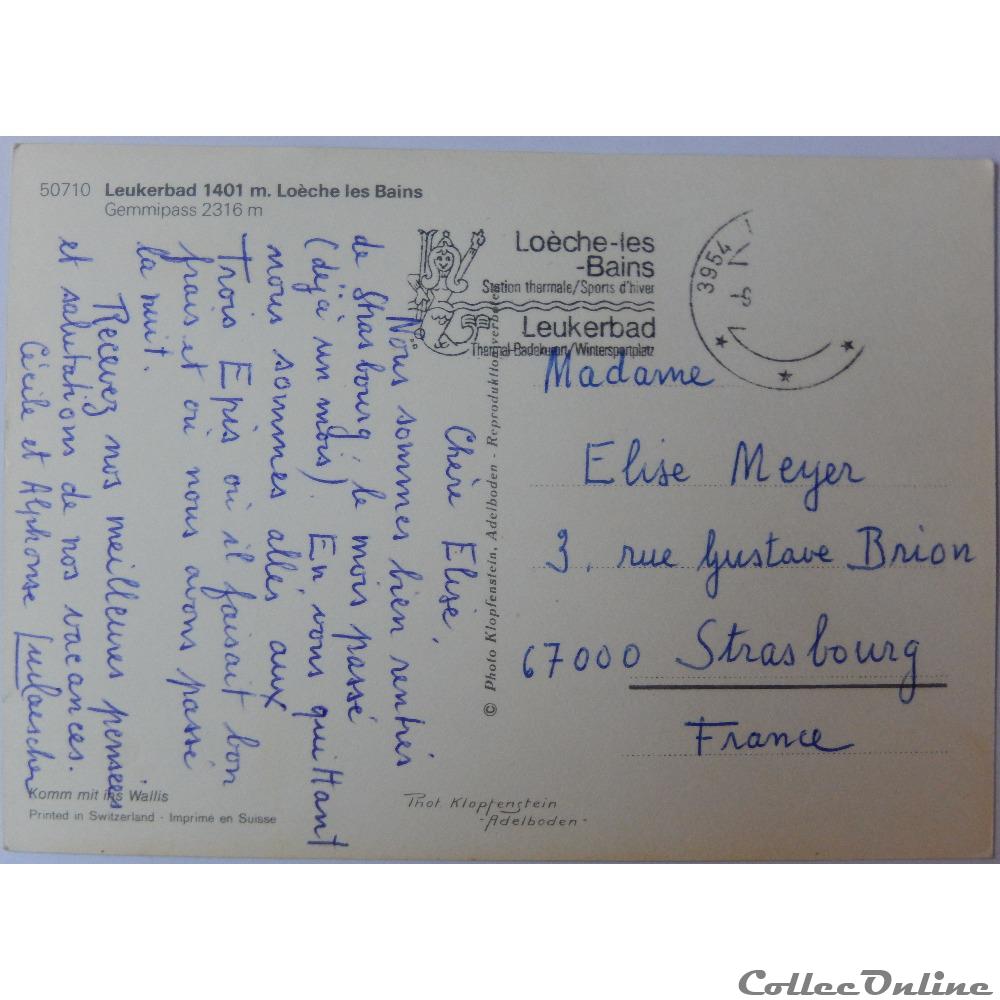 50710 Leukerbad 1401 m. Loèche les Bains
Gemmipass 2316 m
Loèche-les
-Bains
Station thermale/Sports d'hiver
Leukerbad
Thermal-Badekurort/Wintersportplatz
3954
Chère Elise,
Nous sommes bien rentrés
de Strasbourg le mois passé
(déjà un mois). En vous quittant
nous sommes allés aux
Trois Epis où il faisait bon
frais et où nous avons passé
la nuit.
Recevez nos meilleures pensées
et salutations de nos vacances.
Cécile et Alphonse
© Photo Klopfenstein, Adelboden - Reproduktion verboten
Madame
Elise Meyer
3, rue Gustave Brion
67000 Strasbourg
France
Komm mit ins Wallis
Printed in Switzerland - Imprimé en Suisse
Phot Klopfenstein
-Adelboden-
CollecOnline